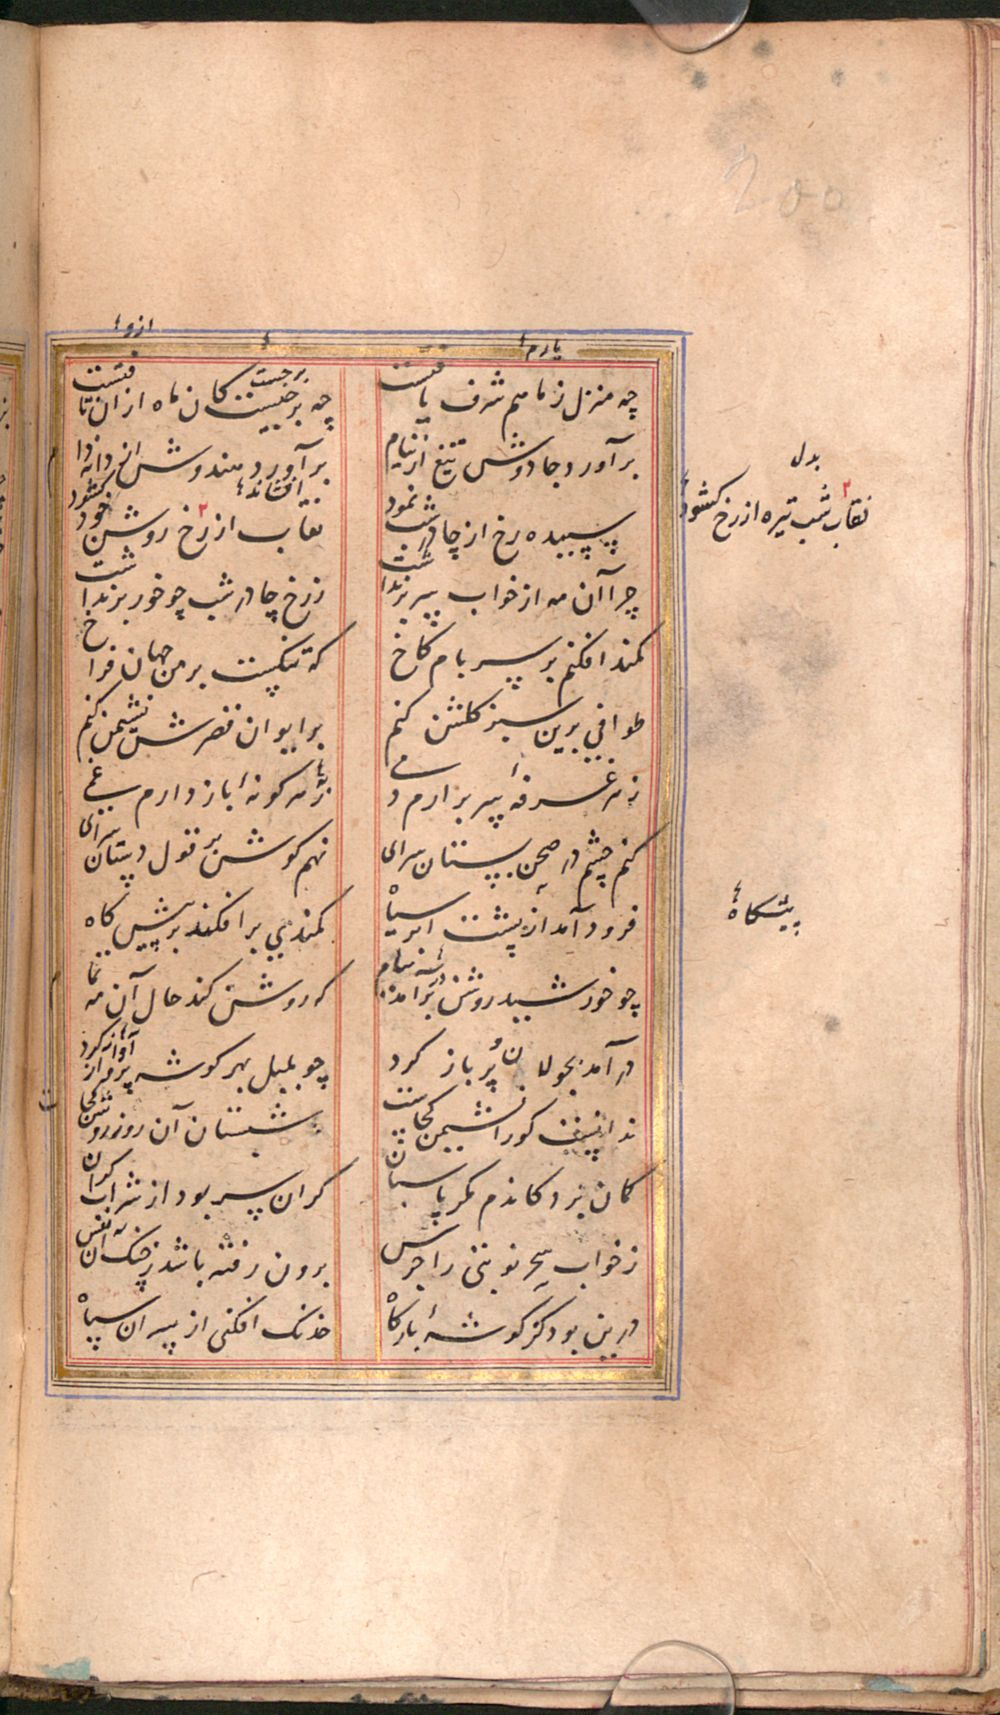 ازو
یارم
چه منزل ز ماهم شرف یافتست
چه برجیست کان ماه ازان تافتست
برجست
برآورد جادوش تیغ از نیام
برآورد هندوش از دانه دا
افشاند
سپیده رخ از چادر شب نمود
نقاب از رخ روشن خود کشود
بدل
نقاب شب تیره از رخ کشود
چرا آن مه از خواب سر برنداشت
ز رخ چادر شب چو خور برنداشت
کمند افکنم بر سر بام کاخ
که تنکست بر من جهان فراخ
طوافی برین سبز کلشن کنم
بر ایوان قصرش نشیمن کنم
ز هر غرفه ٔ سر برارم دمی
ز هر کونه ٔ باز دارم غمی
کنم چشم در صحن بستان سرای
نهم کوش بر قول دستان سرای
فرود آمد از پشت ابر سیاه
کمندی بر افکند بر پیش کاه
پیشکاه
چو خورشید روشن برآمد ببام
که روشن کند حال آن مه تما
درآمد بجولان و پر باز کرد
چو بلبل بهر کوشه پرواز کرد
آواز
ندانست کورا نشیمن کجاست
شبستان آن روز روشن کجاست
کمان برد کاندم مکر پاسبان
کران سر بود از شراب کران
ز خواب سحر نوبتی را جرس
برون رفته باشد ز چنک آن نفس
درین بود کز کوشه ٔ بارکاه
خدنک افکنی از سران سپاه